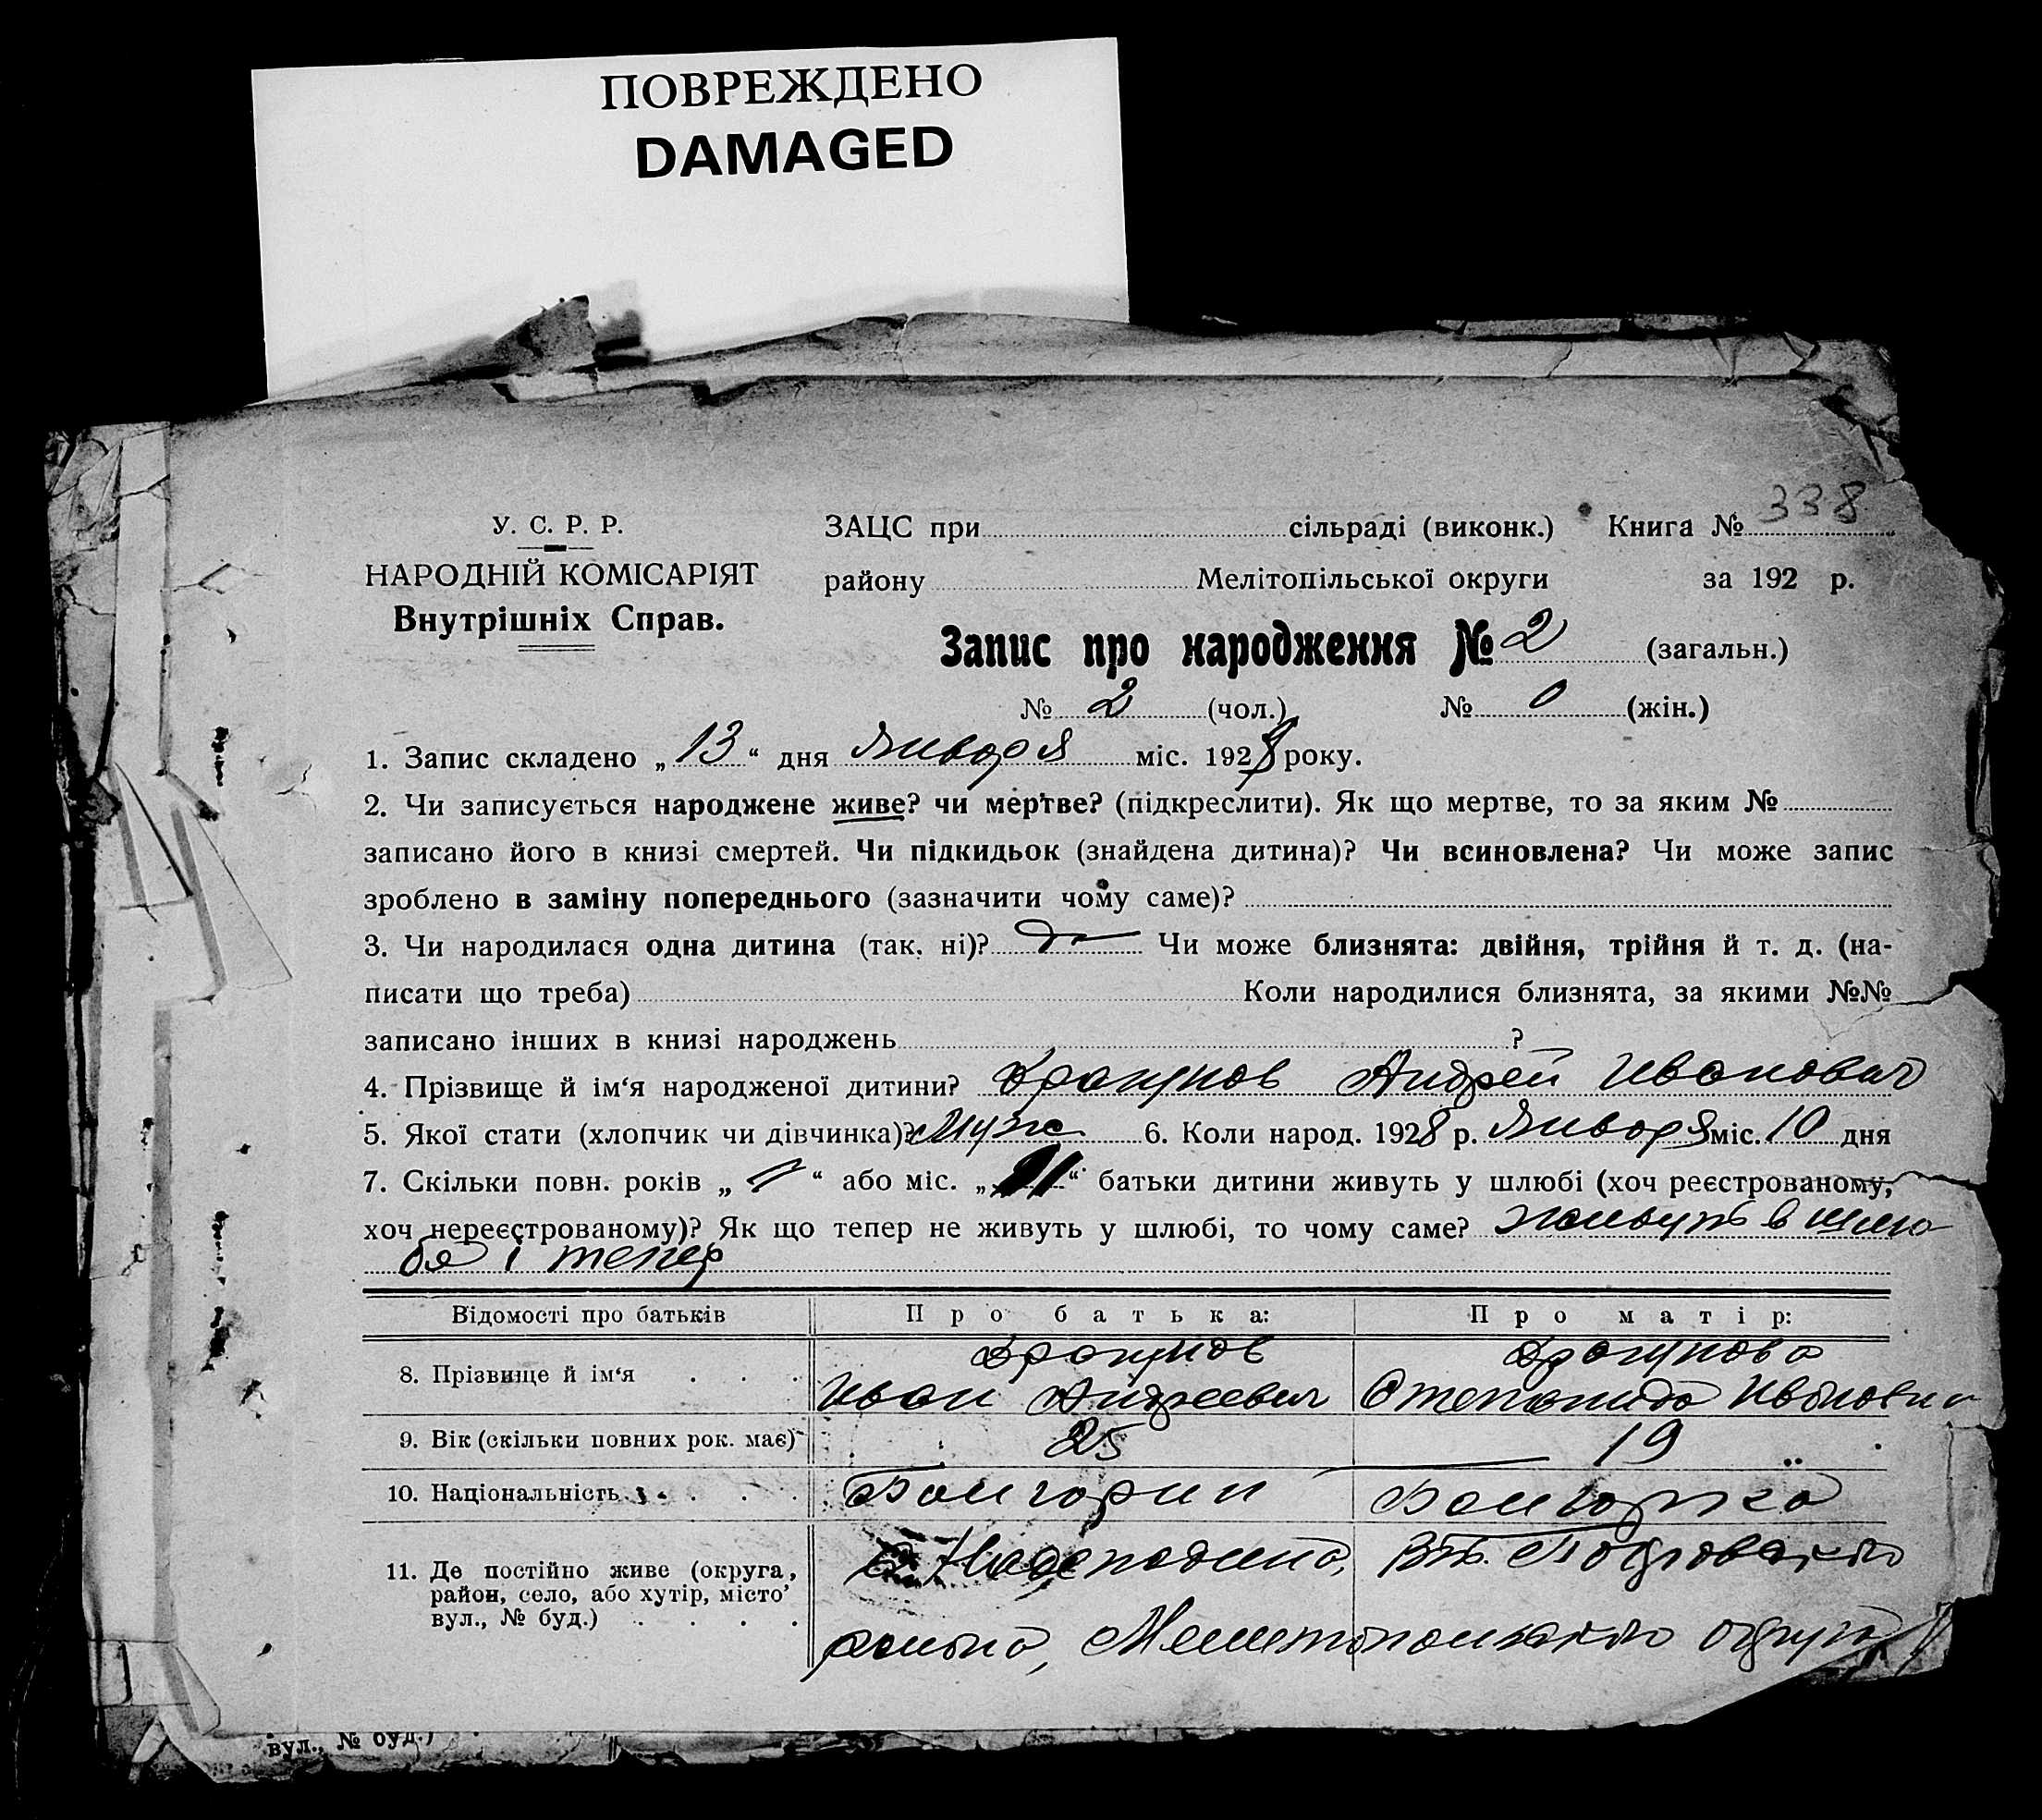 ПОВРЕЖДЕНО
DAMAGED
У. С. Р. Р.
НАРОДНІЙ КОМІСАРІЯТ
Внутрішніх Справ.
ЗАЦС при сільраді (виконк.) Книга № 338
району Мелітопільської округи за 192 р.
Запис про народження № 2 (загальн.)
№ 2 (чол.) № 0 (жін.)
1. Запис складено „ 13 “ дня Января міс. 1928 року.
2. Чи записується народжене живе? чи мертве? (підкреслити). Як що мертве, то за яким №
записано його в книзі смертей. Чи підкидьок (знайдена дитина)? Чи всиновлена? Чи може запис
зроблено в заміну попереднього (зазначити чому саме)?
3. Чи народилася одна дитина (так, ні)? да Чи може близнята: двійня, трійня й т. д. (на-
писати що треба) Коли народилися близнята, за якими №№
записано інших в книзі народжень ?
4. Прізвище й ім‘я народженої дитини? Драгунов Андрей Иванович
5. Якої стати (хлопчик чи дівчинка)? Муж 6. Коли народ. 1928 р. Января міс. 10 дня
7. Скільки повн. років „ “ або міс. „ “ батьки дитини живуть у шлюбі (хоч реєстрованому,
хоч нереєстрованому)? Як що тепер не живуть у шлюбі, то чому саме? живуть в шлю
бя і тепер
Відомості про батьків Про батька: Про матір:
8. Прізвище й ім‘я Драгунов Иван Андреевич Драгунова Степанида Ивановна
9. Вік (скільки повних рок. має) 25 19
10. Національність Болгарин Болгарка
11. Де постійно живе (округа, район, село, або хутір, місто, вул., № буд.)
района, Мелитопольского округа
вул., № буд.)